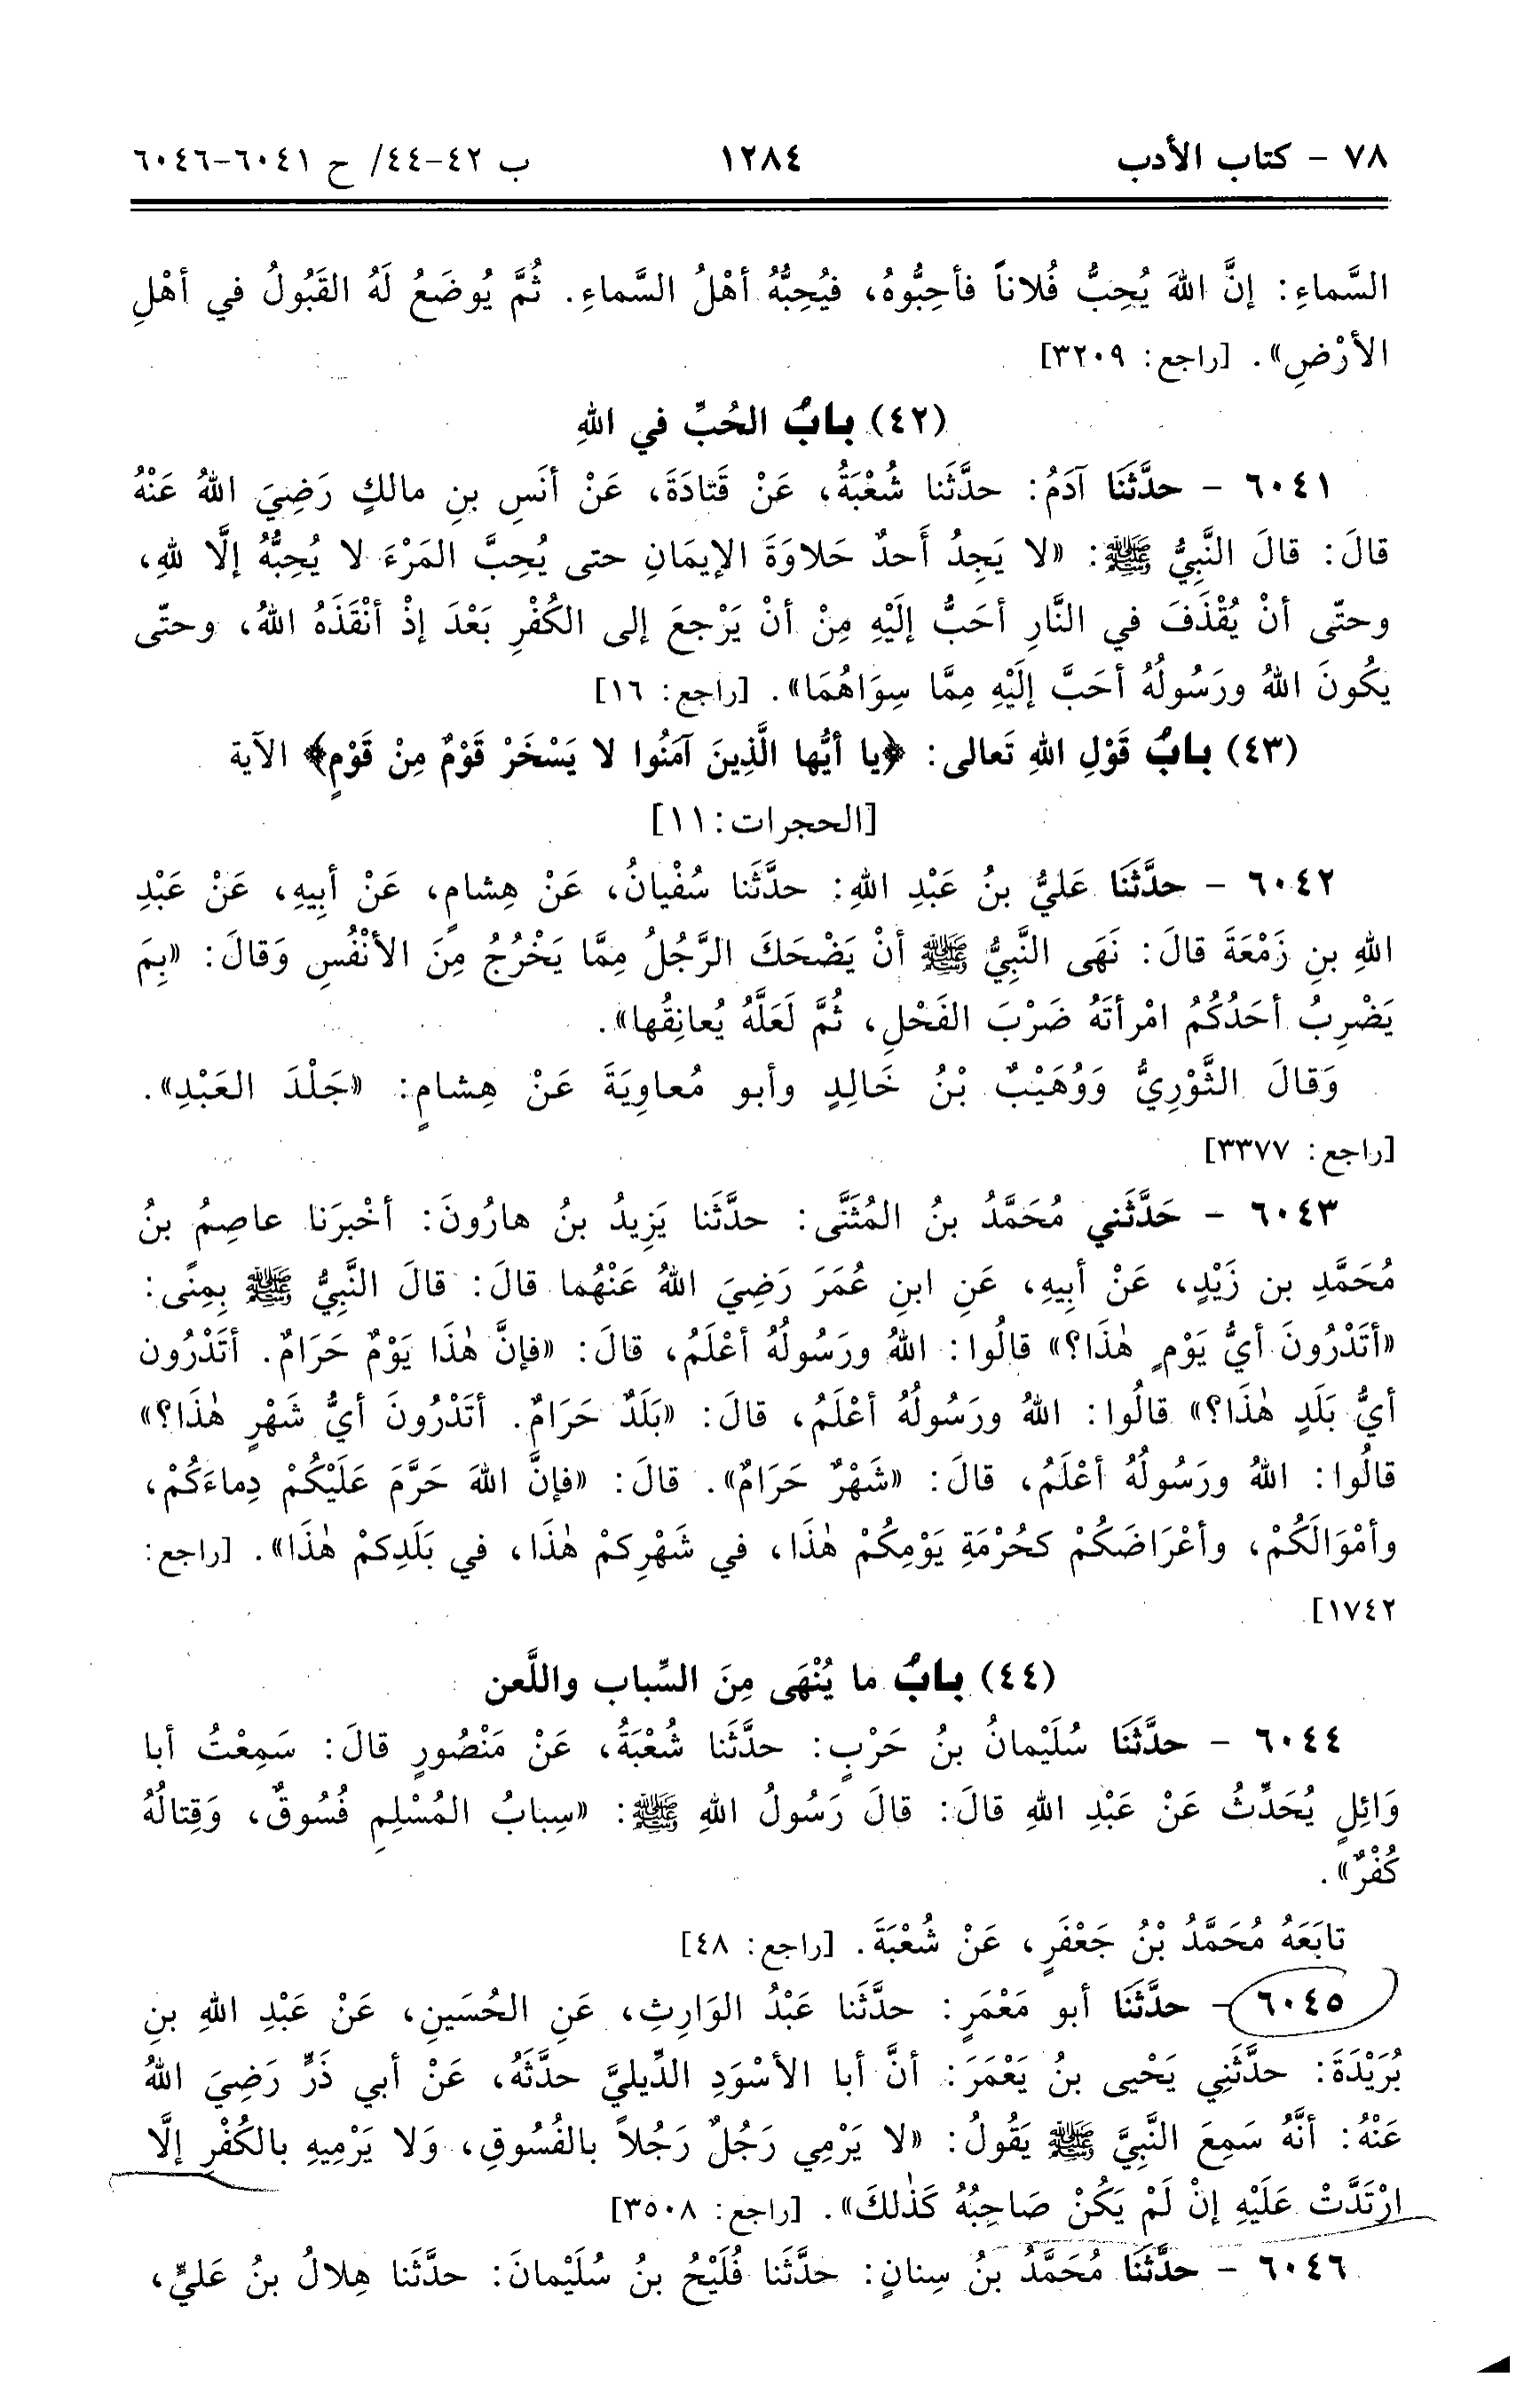 ٧٨ - كتاب الأدب ١٢٨٤ ب ٤٢-٤٤/ ح ٦٠٤١-٦٠٤٦
السَّماءِ: إنَّ اللهَ يُحِبُّ فُلاناً فأحِبُّوهُ، فيُحِبُّهُ أهْلُ السَّماءِ. ثُمَّ يُوضَعُ لَهُ القَبُولُ في أهْلِ
الأرْضِ». [راجع: ٣٢٠٩]
(٤٢) بابُ الحُبِّ في اللهِ
٦٠٤١ - حدَّثَنَا آدَمُ: حدَّثَنا شُعْبَةُ، عَنْ قَتادَةَ، عَنْ أنَسِ بنِ مالكٍ رَضِيَ اللهُ عَنْهُ
قالَ: قالَ النَّبِيُّ ﷺ: «لا يَجِدُ أَحدٌ حَلاوَةَ الإيمَانِ حتى يُحِبَّ المَرْءَ لا يُحِبُّهُ إلَّا للهِ،
وحتّى أنْ يُقْذَفَ في النَّارِ أحَبُّ إلَيْهِ مِنْ أنْ يَرْجعَ إلى الكُفْرِ بَعْدَ إذْ أنْقَذَهُ اللهُ، وحتّى
يكُونَ اللهُ ورَسُولُهُ أحَبَّ إلَيْهِ مِمَّا سِوَاهُمَا». [راجع: ١٦]
(٤٣) بابُ قَوْلِ اللهِ تَعالى: ﴿يا أيُّها الَّذِينَ آمَنُوا لا يَسْخَرْ قَوْمٌ مِنْ قَوْمٍ﴾ الآية
[الحجرات: ١١]
٦٠٤٢ - حدَّثَنَا عَليُّ بنُ عَبْدِ اللهِ: حدَّثَنا سُفْيانُ، عَنْ هِشامٍ، عَنْ أبِيهِ، عَنْ عَبْدِ
اللهِ بنِ زَمْعَةَ قالَ: نَهَى النَّبِيُّ ﷺ أنْ يَضْحَكَ الرَّجُلُ مِمَّا يَخْرُجُ مِنَ الأنْفُسِ وَقالَ: «بِمَ
يَضْرِبُ أحَدُكُمُ امْرأتَهُ ضَرْبَ الفَحْلِ، ثُمَّ لَعَلَّهُ يُعانِقُها».
وَقالَ الثَّوْرِيُّ وَوُهَيْبٌ بْنُ خَالِدٍ وأبو مُعاوِيَةَ عَنْ هِشامٍ: «جَلْدَ العَبْدِ».
[راجع: ٣٣٧٧]
٦٠٤٣ - حَدَّثَني مُحَمَّدُ بنُ المُثَنَّى: حدَّثَنا يَزِيدُ بنُ هارُونَ: أخْبرَنا عاصِمُ بنُ
مُحَمَّدِ بن زَيْدٍ، عَنْ أبِيهِ، عَنِ ابنِ عُمَرَ رَضِيَ اللهُ عَنْهُما قالَ: قالَ النَّبِيُّ ﷺ بِمِنًى:
«أتَدْرُونَ أيُّ يَوْمٍ هٰذَا؟» قالُوا: اللهُ ورَسُولُهُ أعْلَمُ، قالَ: «فإنَّ هٰذَا يَوْمٌ حَرَامٌ. أتَدْرُون
أيُّ بَلَدٍ هٰذَا؟» قالُوا: اللهُ ورَسُولُهُ أعْلَمُ، قالَ: «بَلَدٌ حَرَامٌ. أتَدْرُونَ أيُّ شَهْرٍ هٰذَا؟»
قالُوا: اللهُ ورَسُولُهُ أعْلَمُ، قالَ: «شَهْرٌ حَرَامٌ». قالَ: «فإنَّ اللهَ حَرَّمَ عَلَيْكُمْ دِماءَكُمْ،
وأمْوَالَكُمْ، وأعْرَاضَكُمْ كحُرْمَةِ يَوْمِكُمْ هٰذَا، في شَهْرِكمْ هٰذَا، في بَلَدِكمْ هٰذَا». [راجع:
١٧٤٢]
(٤٤) بابُ ما يُنْهَى مِنَ السِّباب واللَّعن
٦٠٤٤ - حدَّثَنَا سُلَيْمانُ بنُ حَرْبٍ: حدَّثَنا شُعْبَةُ، عَنْ مَنْصُورٍ قالَ: سَمِعْتُ أبا
وَائِلٍ يُحَدِّثُ عَنْ عَبْدِ اللهِ قالَ: قالَ رَسُولُ اللهِ ﷺ: «سِبابُ المُسْلِمِ فُسُوقٌ، وَقِتالُهُ
كُفْرٌ».
تابَعَهُ مُحَمَّدُ بْنُ جَعْفَرٍ، عَنْ شُعْبَةَ. [راجع: ٤٨]
٦٠٤٥ - حدَّثَنَا أبو مَعْمَرٍ: حدَّثَنا عَبْدُ الوَارِثِ، عَنِ الحُسَينِ، عَنْ عَبْدِ اللهِ بنِ
بُرَيْدَةَ: حدَّثَنِي يَحْيى بنُ يَعْمَرَ: أنَّ أبا الأسْوَدِ الدِّيليَّ حدَّثَهُ، عَنْ أبي ذَرٍّ رَضِيَ اللهُ
عَنْهُ: أنَّهُ سَمِعَ النَّبِيَّ ﷺ يَقُولُ: «لا يَرْمِي رَجُلٌ رَجُلاً بالفُسُوقِ، وَلا يَرْمِيهِ بالكُفْرِ إلَّا
ارْتَدَّتْ عَلَيْهِ إنْ لَمْ يَكُنْ صَاحِبُهُ كَذٰلكَ». [راجع: ٣٥٠٨]
٦٠٤٦ - حدَّثَنَا مُحَمَّدُ بنُ سِنانٍ: حدَّثَنا فُلَيْحُ بنُ سُلَيْمانَ: حدَّثَنا هِلالُ بنُ عَليٍّ،